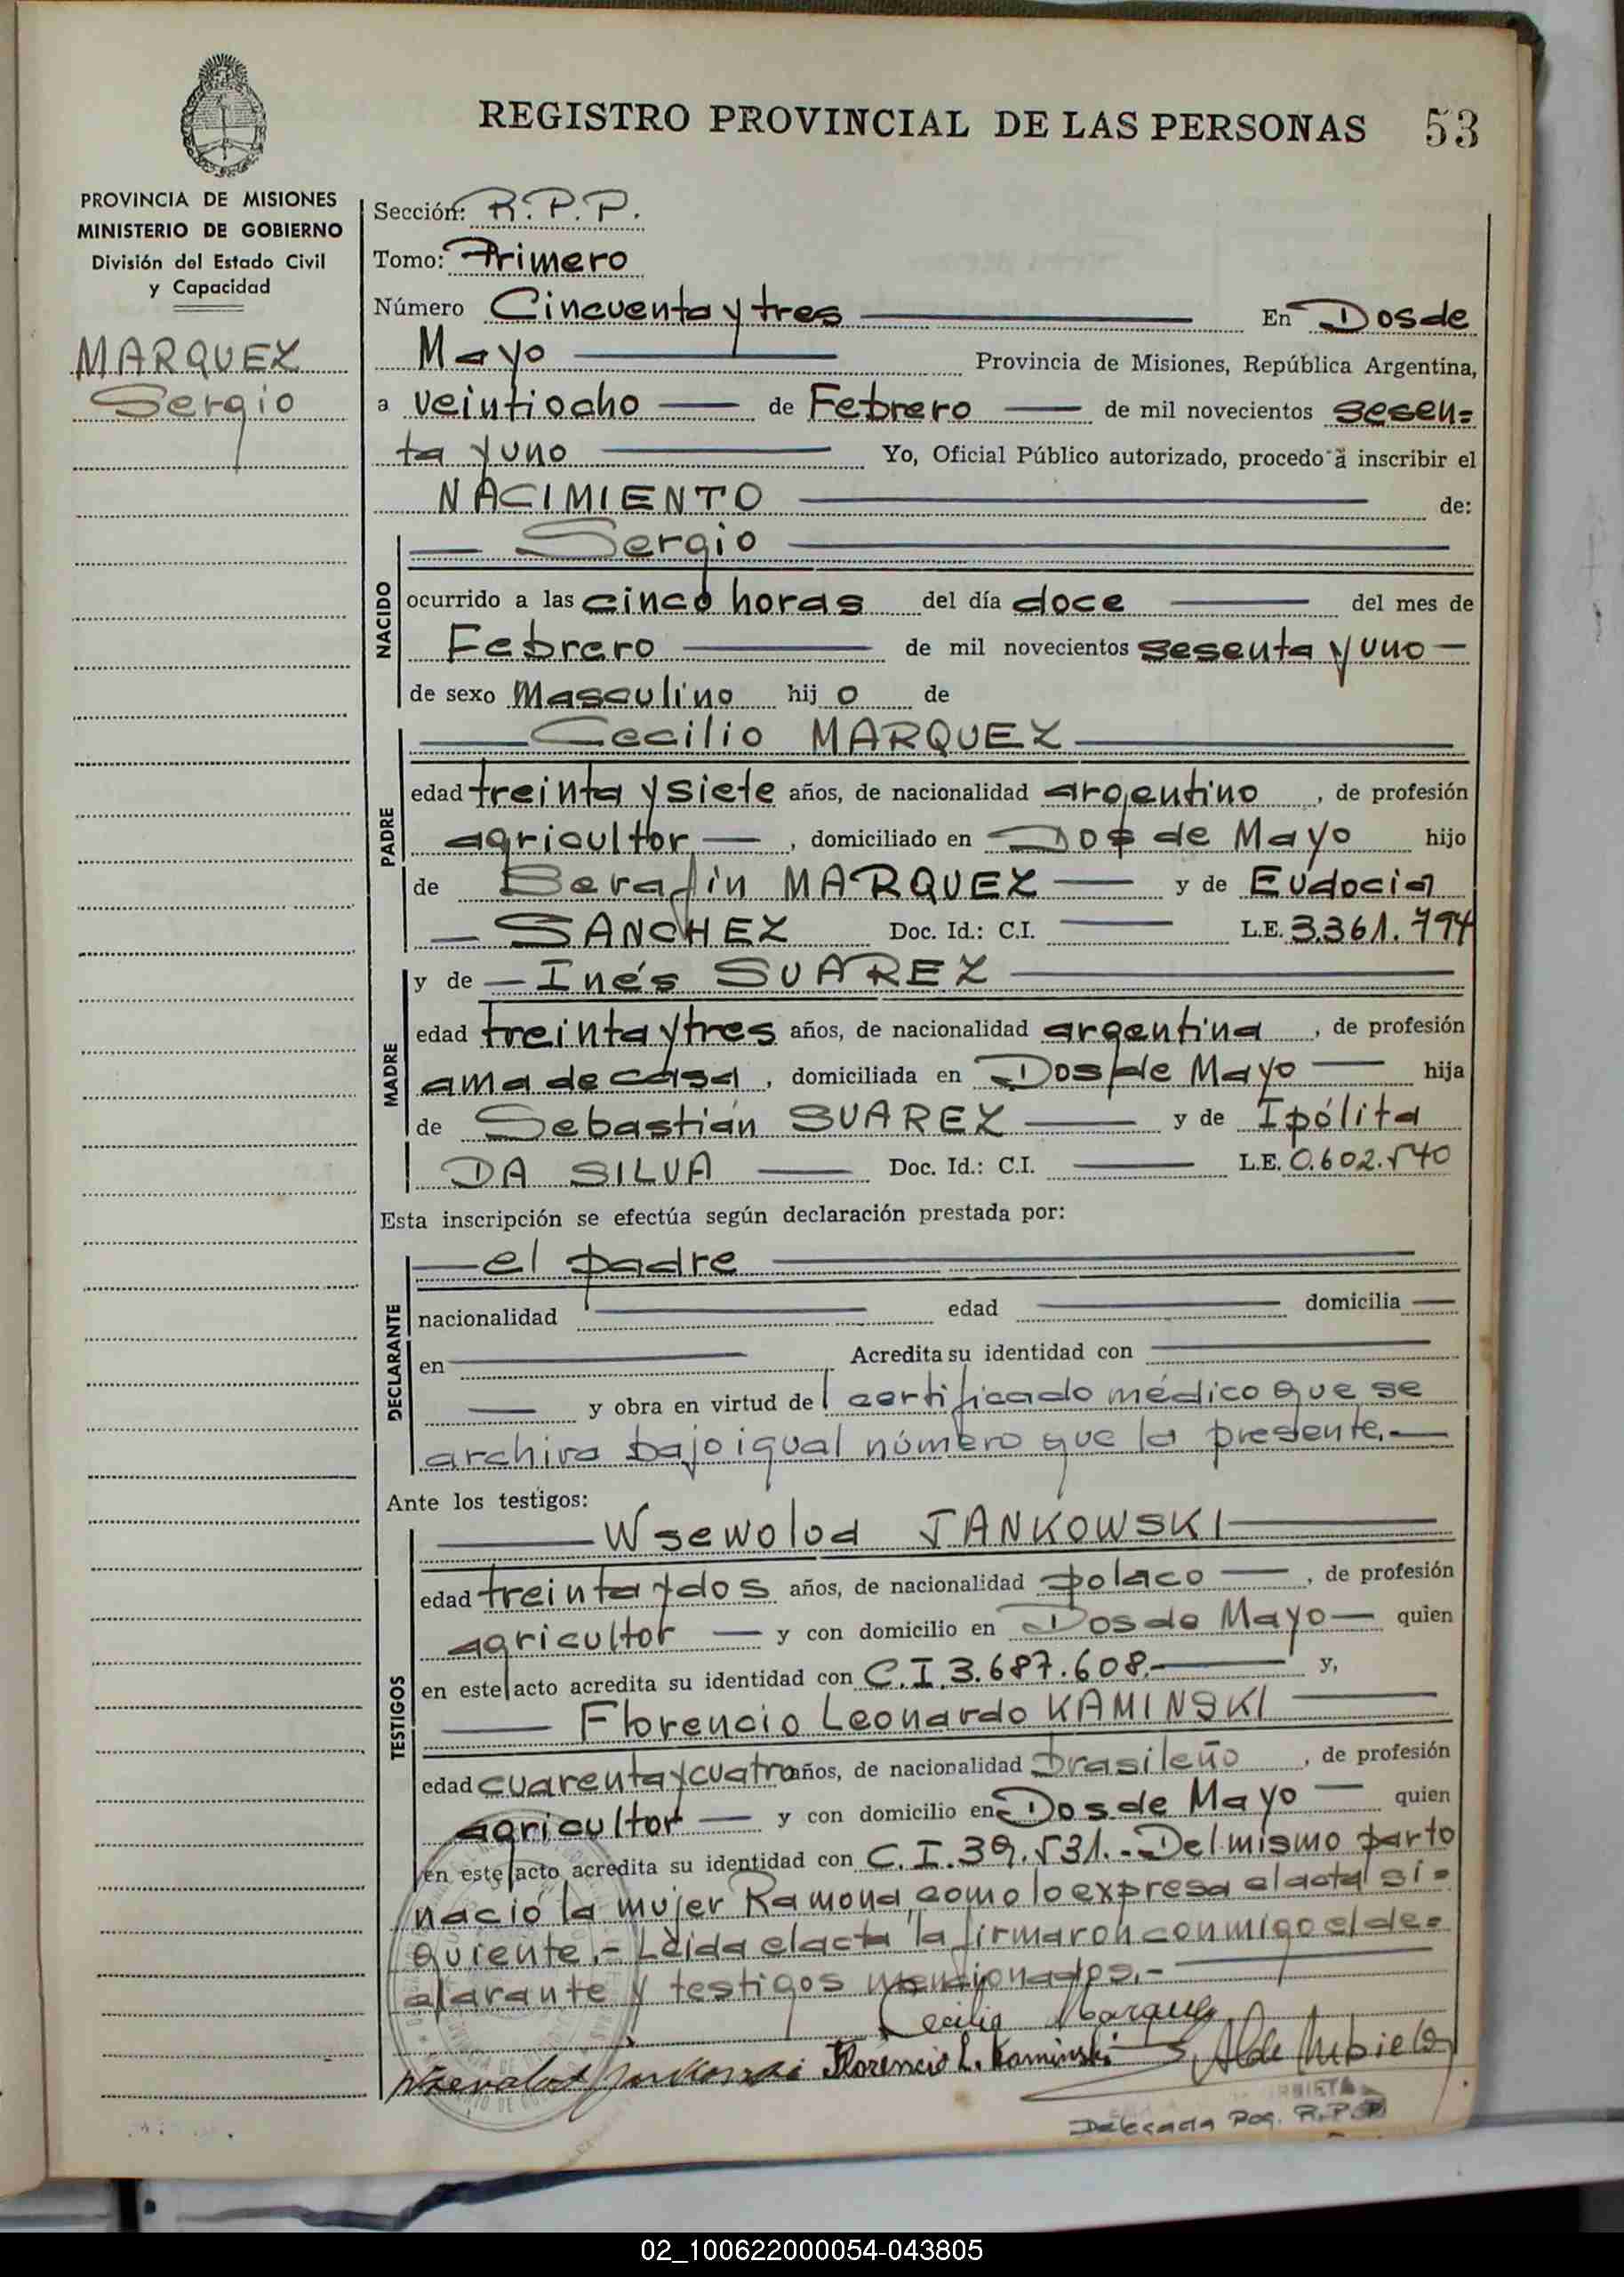 REGISTRO PROVINCIAL DE LAS PERSONAS 53
PROVINCIA DE MISIONES
MINISTERIO DE GOBIERNO
División del Estado Civil
y Capacidad
MARQUEZ
Sergio
Sección: R.P.P.
Tomo: Primero
Número Cincuenta y tres En Dos de
Mayo Provincia de Misiones, República Argentina,
a veintiocho de Febrero de mil novecientos sesen=
ta y uno Yo, Oficial Público autorizado, procedo a inscribir el
NACIMIENTO de:
NACIDO
Sergio
ocurrido a las cinco horas del día doce del mes de
Febrero de mil novecientos sesenta y uno
de sexo Masculino hijo de
PADRE
Cecilio MARQUEZ
edad treinta y siete años, de nacionalidad argentino, de profesión
agricultor, domiciliado en Dos de Mayo hijo
de Serafín MARQUEZ y de Eudocia
SANCHEZ Doc. Id.: C.I. L.E. 3.361.794
MADRE
y de Inés SUAREZ
edad treinta y tres años, de nacionalidad argentina, de profesión
ama de casa, domiciliada en Dos de Mayo hija
de Sebastián SUAREZ y de Ipólita
DA SILVA Doc. Id.: C.I. L.E. 0.602.540
Esta inscripción se efectúa según declaración prestada por:
DECLARANTE
el padre
nacionalidad edad domicilia
en Acredita su identidad con
y obra en virtud del certificado médico que se
archiva bajo igual número que la presente.
Ante los testigos:
TESTIGOS
Wsewolod JANKOWSKI
edad treinta y dos años, de nacionalidad polaco, de profesión
agricultor y con domicilio en Dos de Mayo quien
en este acto acredita su identidad con C.I. 3.687.608. y,
Florencio Leonardo KAMINSKI
edad cuarenta y cuatro años, de nacionalidad brasileño, de profesión
agricultor y con domicilio en Dos de Mayo quien
en este acto acredita su identidad con C.I. 39.531.- Del mismo parto
nació la mujer Ramona, como lo expresa el acta si=
guiente.- Leida el acta la firmaron conmigo el de=
clarante y testigos mencionados.-
Cecilio Marquez
Florencio L. Kaminski
Delegada Pog. R.P.P.
02_100622000054-043805